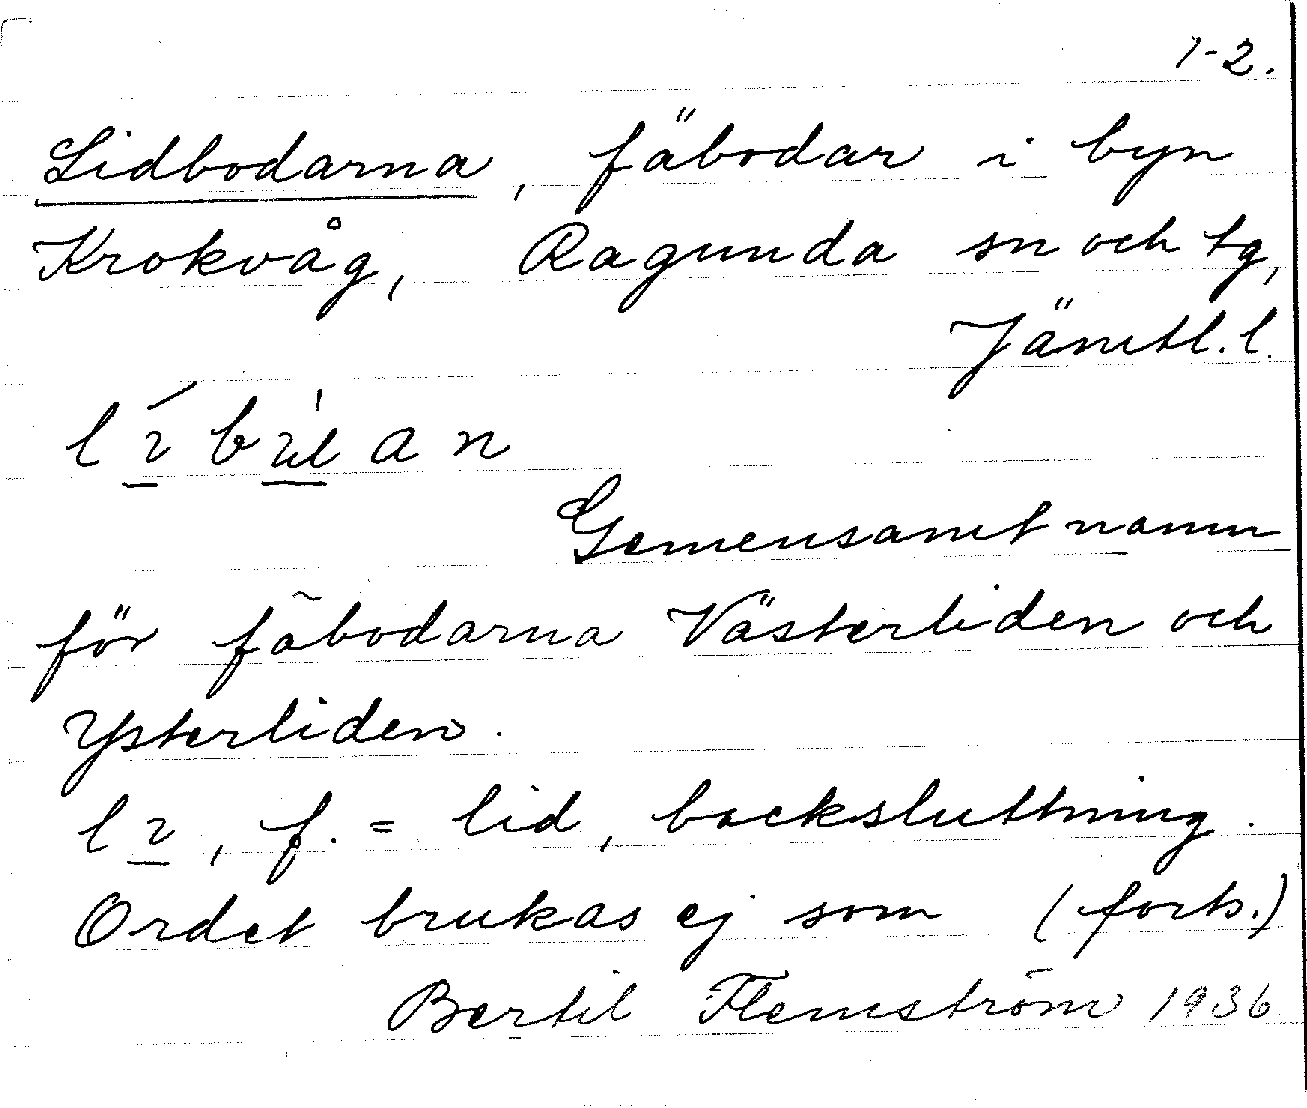 1-2.
Lidbodarna, fäbodar i byn
Krokvåg, Ragunda sn och tg,
Jämtl. l.
Gemensamt namn
för fäbodarna Västerliden och
Ysterliden.
f. = lid, backsluttning.
Ordet brukas ej som (forts.)
Bertil Flemström 1936